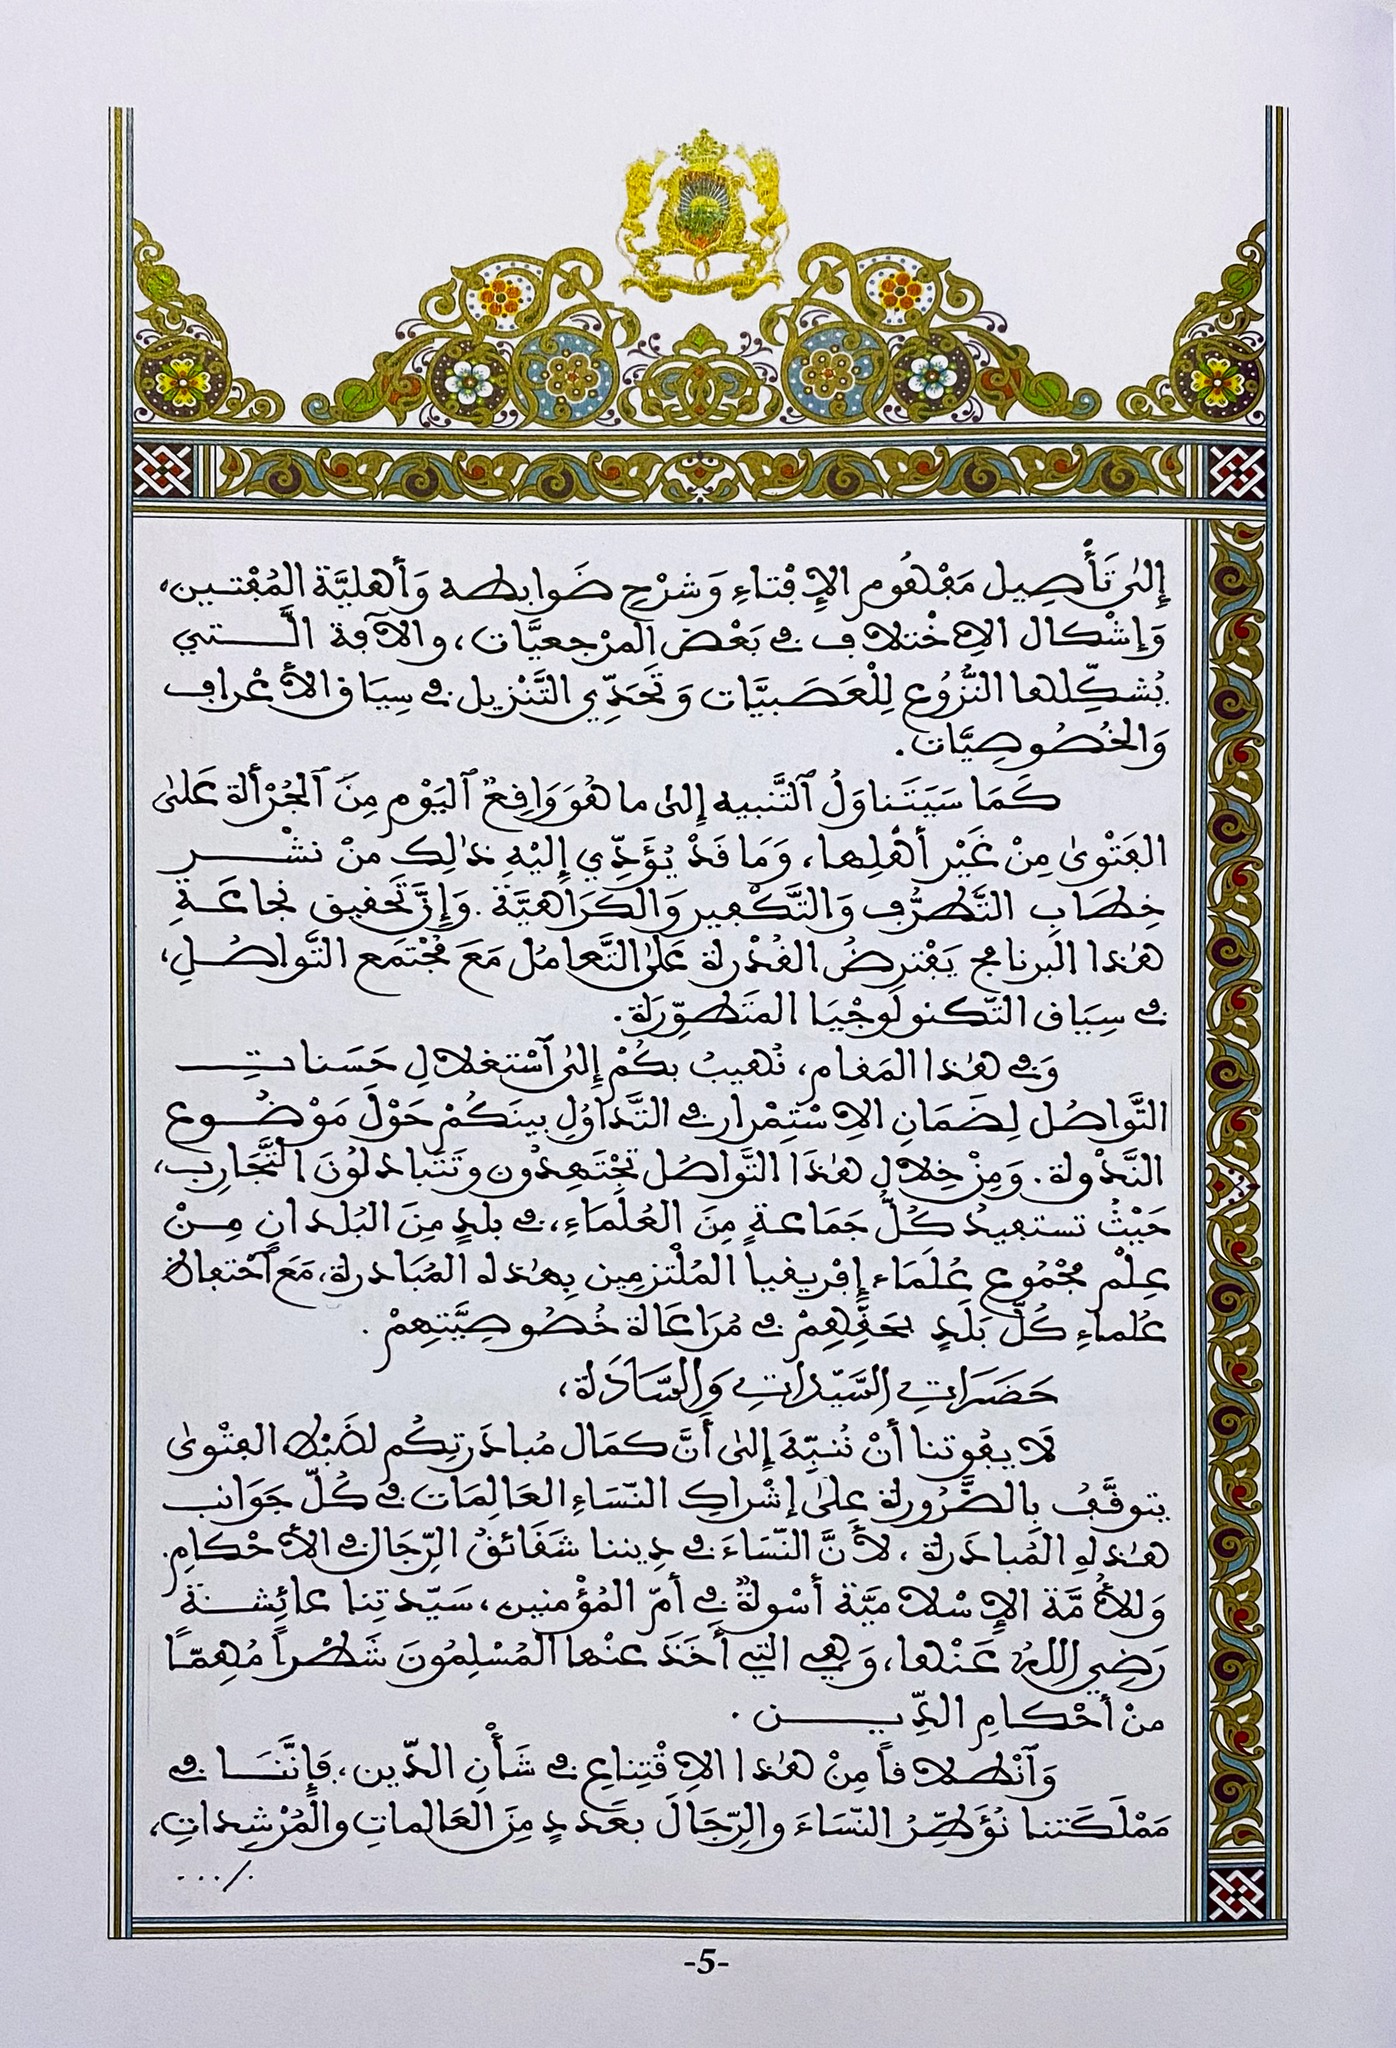 إِلىٰ تَأْصِيل مَفْهُوم الإِفْتاءِ وَشَرْحِ ضَوابطه وَأَهليَّة المُفْتـين،
وَإشْكال الاِخْتلاف في بَعْض المرْجعيَّات، والآفة الَّـــتي
يُشكِّلها النُّزُوع لِلْعَصَبيَّات وَتَحَدِّي التَّنْزيل في سِيَاق الأَعْراف
وَالخُصُوصِيَّات.
كَمَا سَيَتَناوَلُ ٱلتَّنبيه إِلىٰ ما هُوَ وَاقِعٌ ٱليَوْم مِنَ ٱلجُرْأة عَلىٰ
الفَتْوىٰ مِنْ غَيْر أهْلِها، وَمَا قَدْ يُؤَدِّي إِلَيْهِ ذٰلِك منْ نشْـــر
خِطَابِ التَّطرُّف وَالتَّكْفير وَالكَرَاهيَّة. وَإِنَّ تَحقيق نجاعَـةِ
هٰذا البرنامج يَفْترِضُ القُدْرة عَلىٰ التَّعامُل مَعَ مُجْتمَع التَّواصُلِ،
في سِيَاق التّكنولوجْيَا المتَطوِّرَة.
وَفي هٰذا المَقام، نُهيبُ بكُمْ إِلىٰ ٱسْتغلالِ حَسَناتِـــ
التَّواصُل لِضَمَانِ الاِسْتِمْرار في التَّداوُلِ بينَكُمْ حَوْلَ مَوْضُــوع
النَّدْوة. وَمِنْ خِلالِ هٰذَا التَّواصُل تجْتَهِدُون وَتَتَبادلُونَ التَّجَارِب،
حَيْثُ تستفيدُ كُلُّ جَمَاعةٍ مِنَ العُلَمَاءِ، في بلدٍ مِنَ البُلدانِ مِــنْ
عِلْم مجْمُوع عُلَمَاءِ إفْريقيا المُلْتزمِين بِهٰذه المُبَادرة، مَعَ ٱحْتفاظ
عُلماءِ كُلّ بَلَدٍ بحَقِّهِمْ في مُرَاعَاة خُصُوصِيَّتِهِمْ.
حَضَرَاتِ السَّيِّداتِ وَالسَّادَة،
لَا يفُوتنا أنْ نُنبِّهَ إِلىٰ أَنَّ كمَال مُبادَرتِكُم لضَبْط الفتْوىٰ
يتوقَّفُ بِالضَّرُورة عَلىٰ إشْراكِ النّسَاءِ العَالِمَات في كُلّ جَوَانب
هٰذهِ المُبادَرة، لأنَّ النّسَاءَ في دِيننا شَقَائقُ الرِّجَال في الأَحْكامِ.
وَللأُمَّة الإِسْلاميَّة أسْوةٌ في أمّ المُؤْمنين، سَيّدتِنا عائِشـةَ
رَضِي اللهُ عَنْها، وَهِي التي أخَذَ عنْها المُسْلِمُونَ شَطْراً مُهِمّـًا
منْ أحْكامِ الدِّيـــــــن.
وَٱنْطلاقاً مِنْ هٰذا الاِقْتِناعِ في شَأْنِ الدّين، فَإِنَّنَــا في
مَمْلَكَتنا نُؤَطِّرُ النّسَاءَ والرِّجَالَ بعَددٍ مِنَ العَالماتِ والمُرْشِداتِ،
/...
-5-